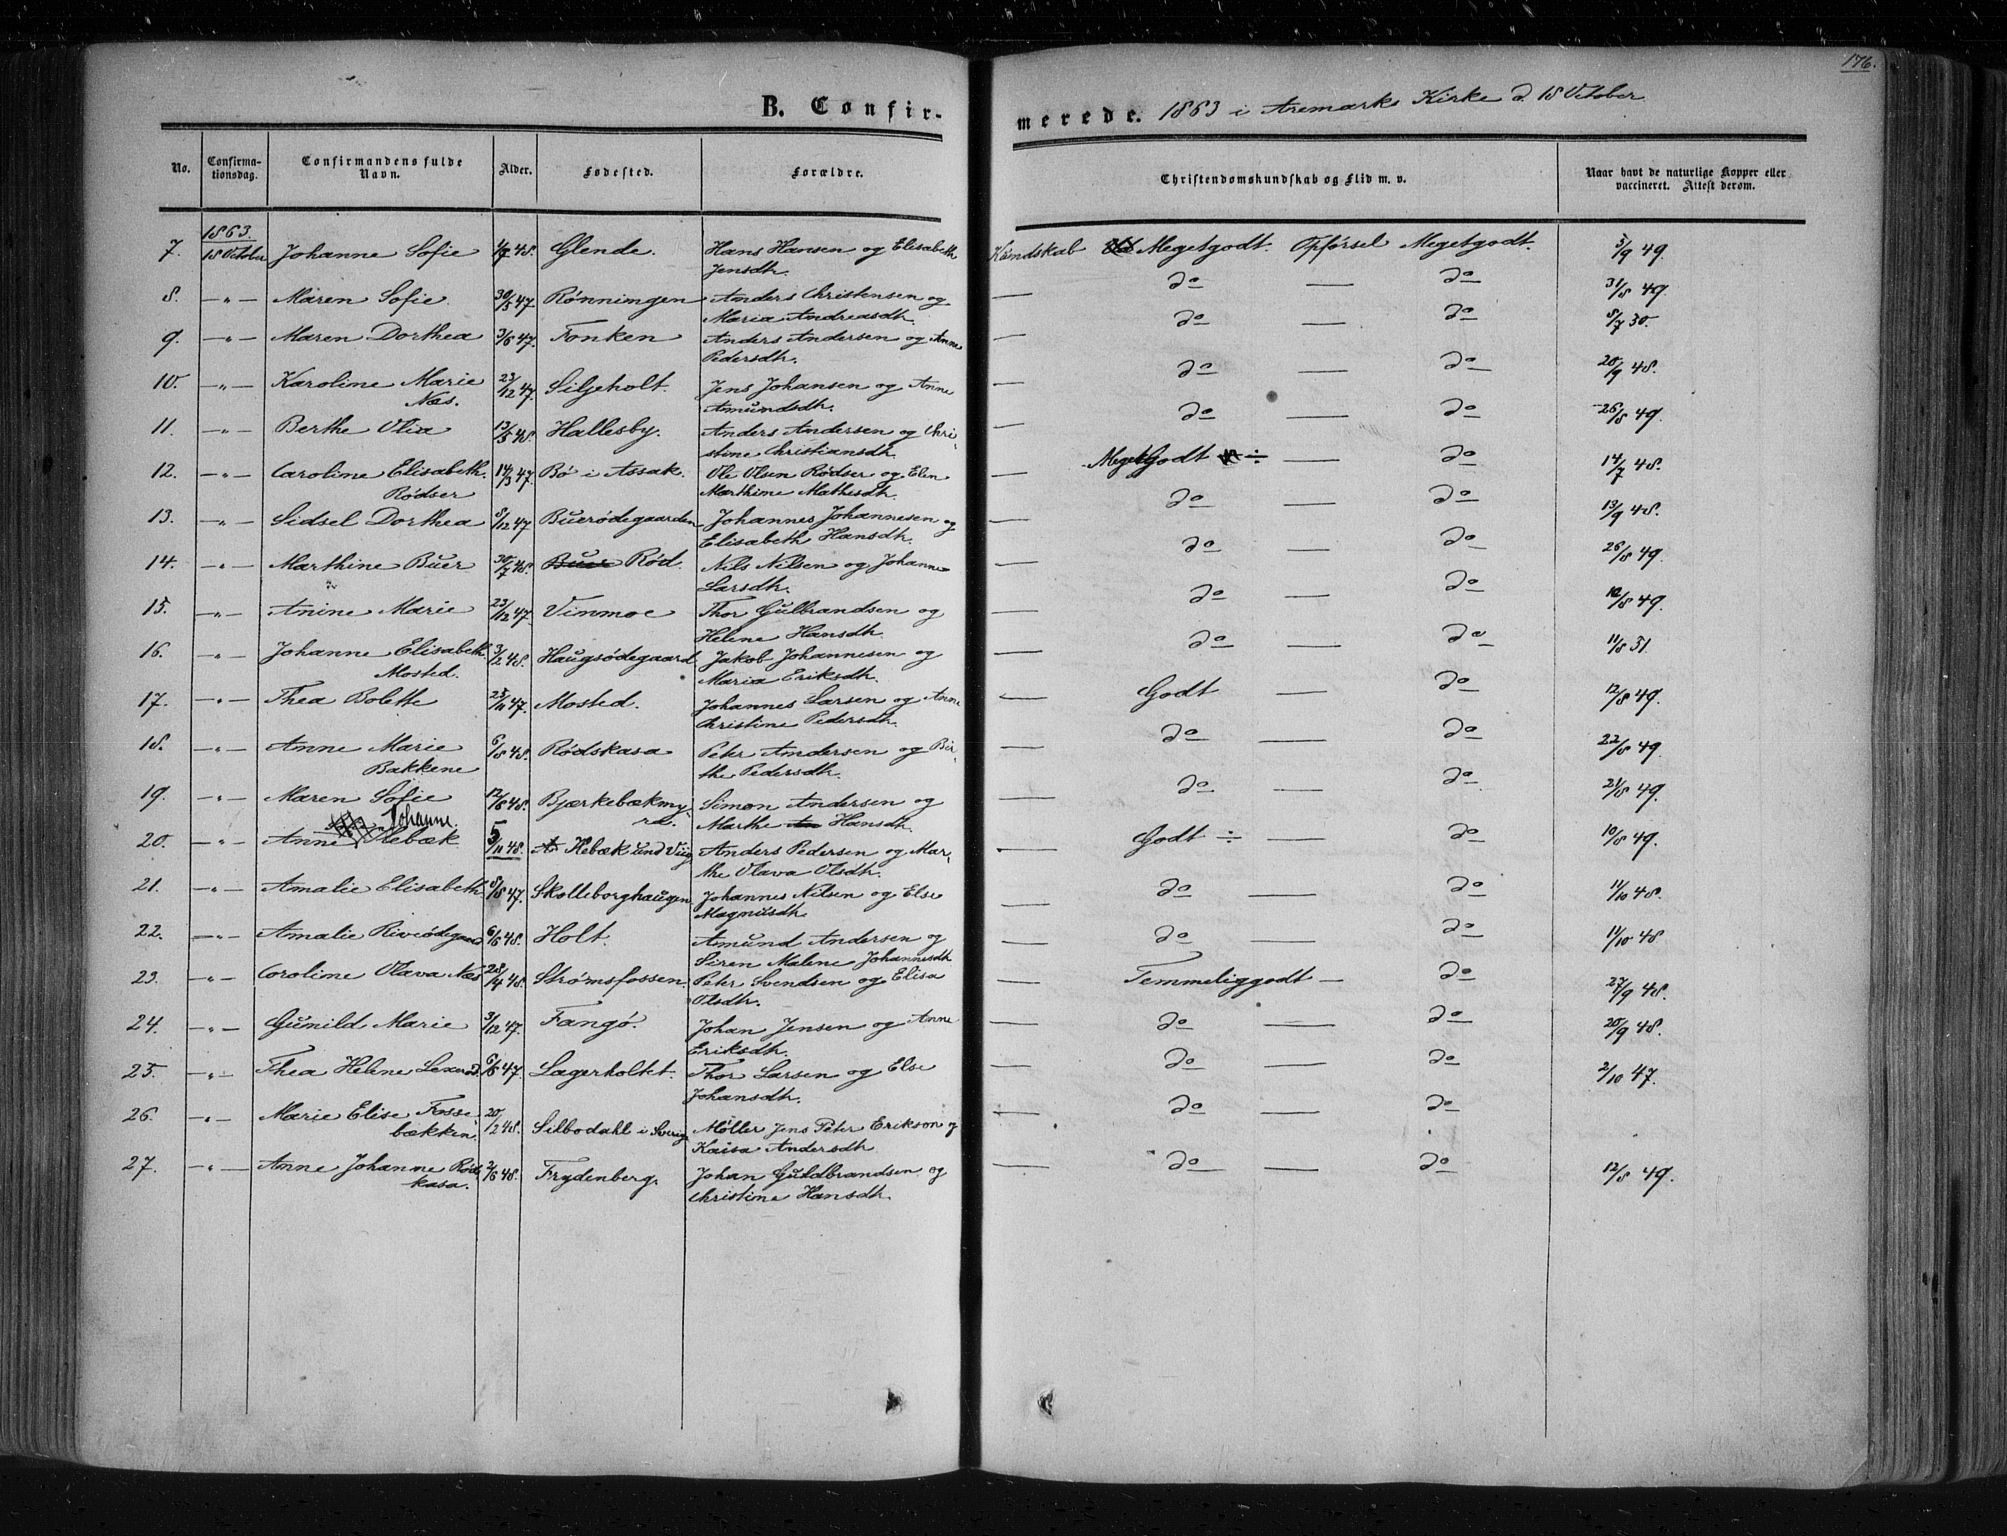 176.
B. Confir-
merede. 1863 i Aremarks Kirke d. 18 October
No. Confirma-tionsdag. Confirmandens fulde Navn. Alder. Fødested. Forældre. Christendomskundskab og Flid m. v. Naar havt de naturlige Kopper eller vaccineret. Attest derom.
1863.
7. 18 October Johanne Sofie 48. Glende. Hans Hansen og Elisabeth Kundskab Megetgodt. Opførsel Megetgodt. 5/9 49.
Jensdh.
8. —"— Maren Sofie. 30/5 47. Rønningen Anders Christensen og — do — do 31/8 49.
Maria Andreasdh.
9. —"— Maren Dorthea 3/6 47. Fonken Anders Andersen og Anne — do — do 8/7 50.
Pedersdh.
10. —"— Karoline Marie 23/12 47. Siljeholt. Jens Johansen og Anne — do — do 20/9 48.
Næs. Amundsdh.
11. —"— Berthe Olia 13/5 48. Hallesby. Anders Andersen og Chri- — do — do 26/8 49.
stine Christiansdh.
12. —"— Caroline Elisabeth 14/3 47. Bø i Assak. Ole Olsen Rødser og Elen — MegetGodt ÷ — do 14/7 48.
Rødser Marthine Mathisdh.
13. —"— Sidsel Dorthea 8/12 47. Buerødegaarden Johannes Johannesen og — do — do 13/9 48.
Elisabeth Hansdh.
14. —"— Marthine Buer 30/7 48. Buer Rød. Nils Nilsen og Johanne do — do 26/8 49.
Larsdh.
15. —"— Anine Marie 23/12 47. Vimmoe Thor Gulbrandsen og — do — do 12/8 49.
Helene Hansdh.
16. —"— Johanne Elisabeth 3/2 48. Haugsødegaard Jakob Johannesen og — do — do 11/8 51.
Mosted. Maria Eriksdh.
17. —"— Thea Bolette 23/11 47. Mosted. Johannes Larsen og Anne — Godt — do 12/8 49.
Christine Pedersdh.
18. —"— Anne Marie 6/8 48. Rødskasa Peter Andersen og Ber- — do — do 22/8 49.
Bakkene the Pedersdh.
19. —"— Maren Sofie 12/8 48. Bjærkebækmy- Simon Andersen og — do — do 21/8 49.
ra. Marthe Hansdh.
Johanne.
20. —"— Anne Hebæk 5/11 48. Hebæk und Viig Anders Pedersen og Mar- — Godt ÷ — do 10/8 49.
the Olava Olsdh.
21. —"— Amalie Elisabeth 8/8 47. Skolleborghaugen Johannes Nilsen og Else — do — do 11/10 48.
Magnusdh.
22. —"— Amalie Riviødegaard 6/6 48. Holt. Amund Andersen og — do — do 11/10 48
Siren Malene Johannesdh
23. —"— Caroline Olava Næs 28/4 48 Strømsfossen. Peter Svendsen og Elisa — Temmeliggodt — do 27/9 48.
Olsdh.
24. —"— Gunild Marie 3/12 47. Fangø. Johan Jensen og Anne — do — do 20/9 48.
Eriksdh.
25. —"— Thea Helene 6/8 47. Lagerholtet. Thor Larsen og Else — do — do 2/10 47.
Johansdh.
26. —"— Marie Elise Fosse- 20/2 48. Silbodahl i Sverig Møller Jens Peter Erikson og — do — do
bækken. Kaisa Andersdh
27. —"— Anne Johanne Rød- 2/6 48. Frydenberg. Johan Guldbrandsen og — do — do 12/8 49.
kasa. Christine Hansdh.